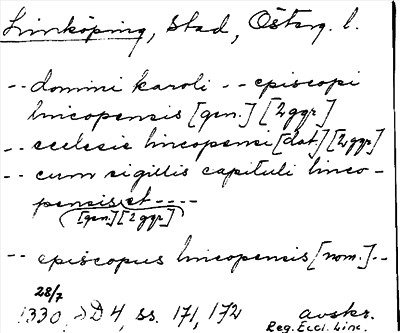 Linköping, Stad, Österg. l.
-- domini karoli -- episcopi
lincopensis [gen.] [2 ggr]
-- ecclesie lincopensi [dat.] [2 ggr]
-- cum sigillis capituli linco-
pensis et ----
[gen.] [2 ggr]
-- episcopus lincopensis [nom.] --
28/7
1330, DD 4, ss. 171, 172 avskr.
Reg. Eccl. Linc.